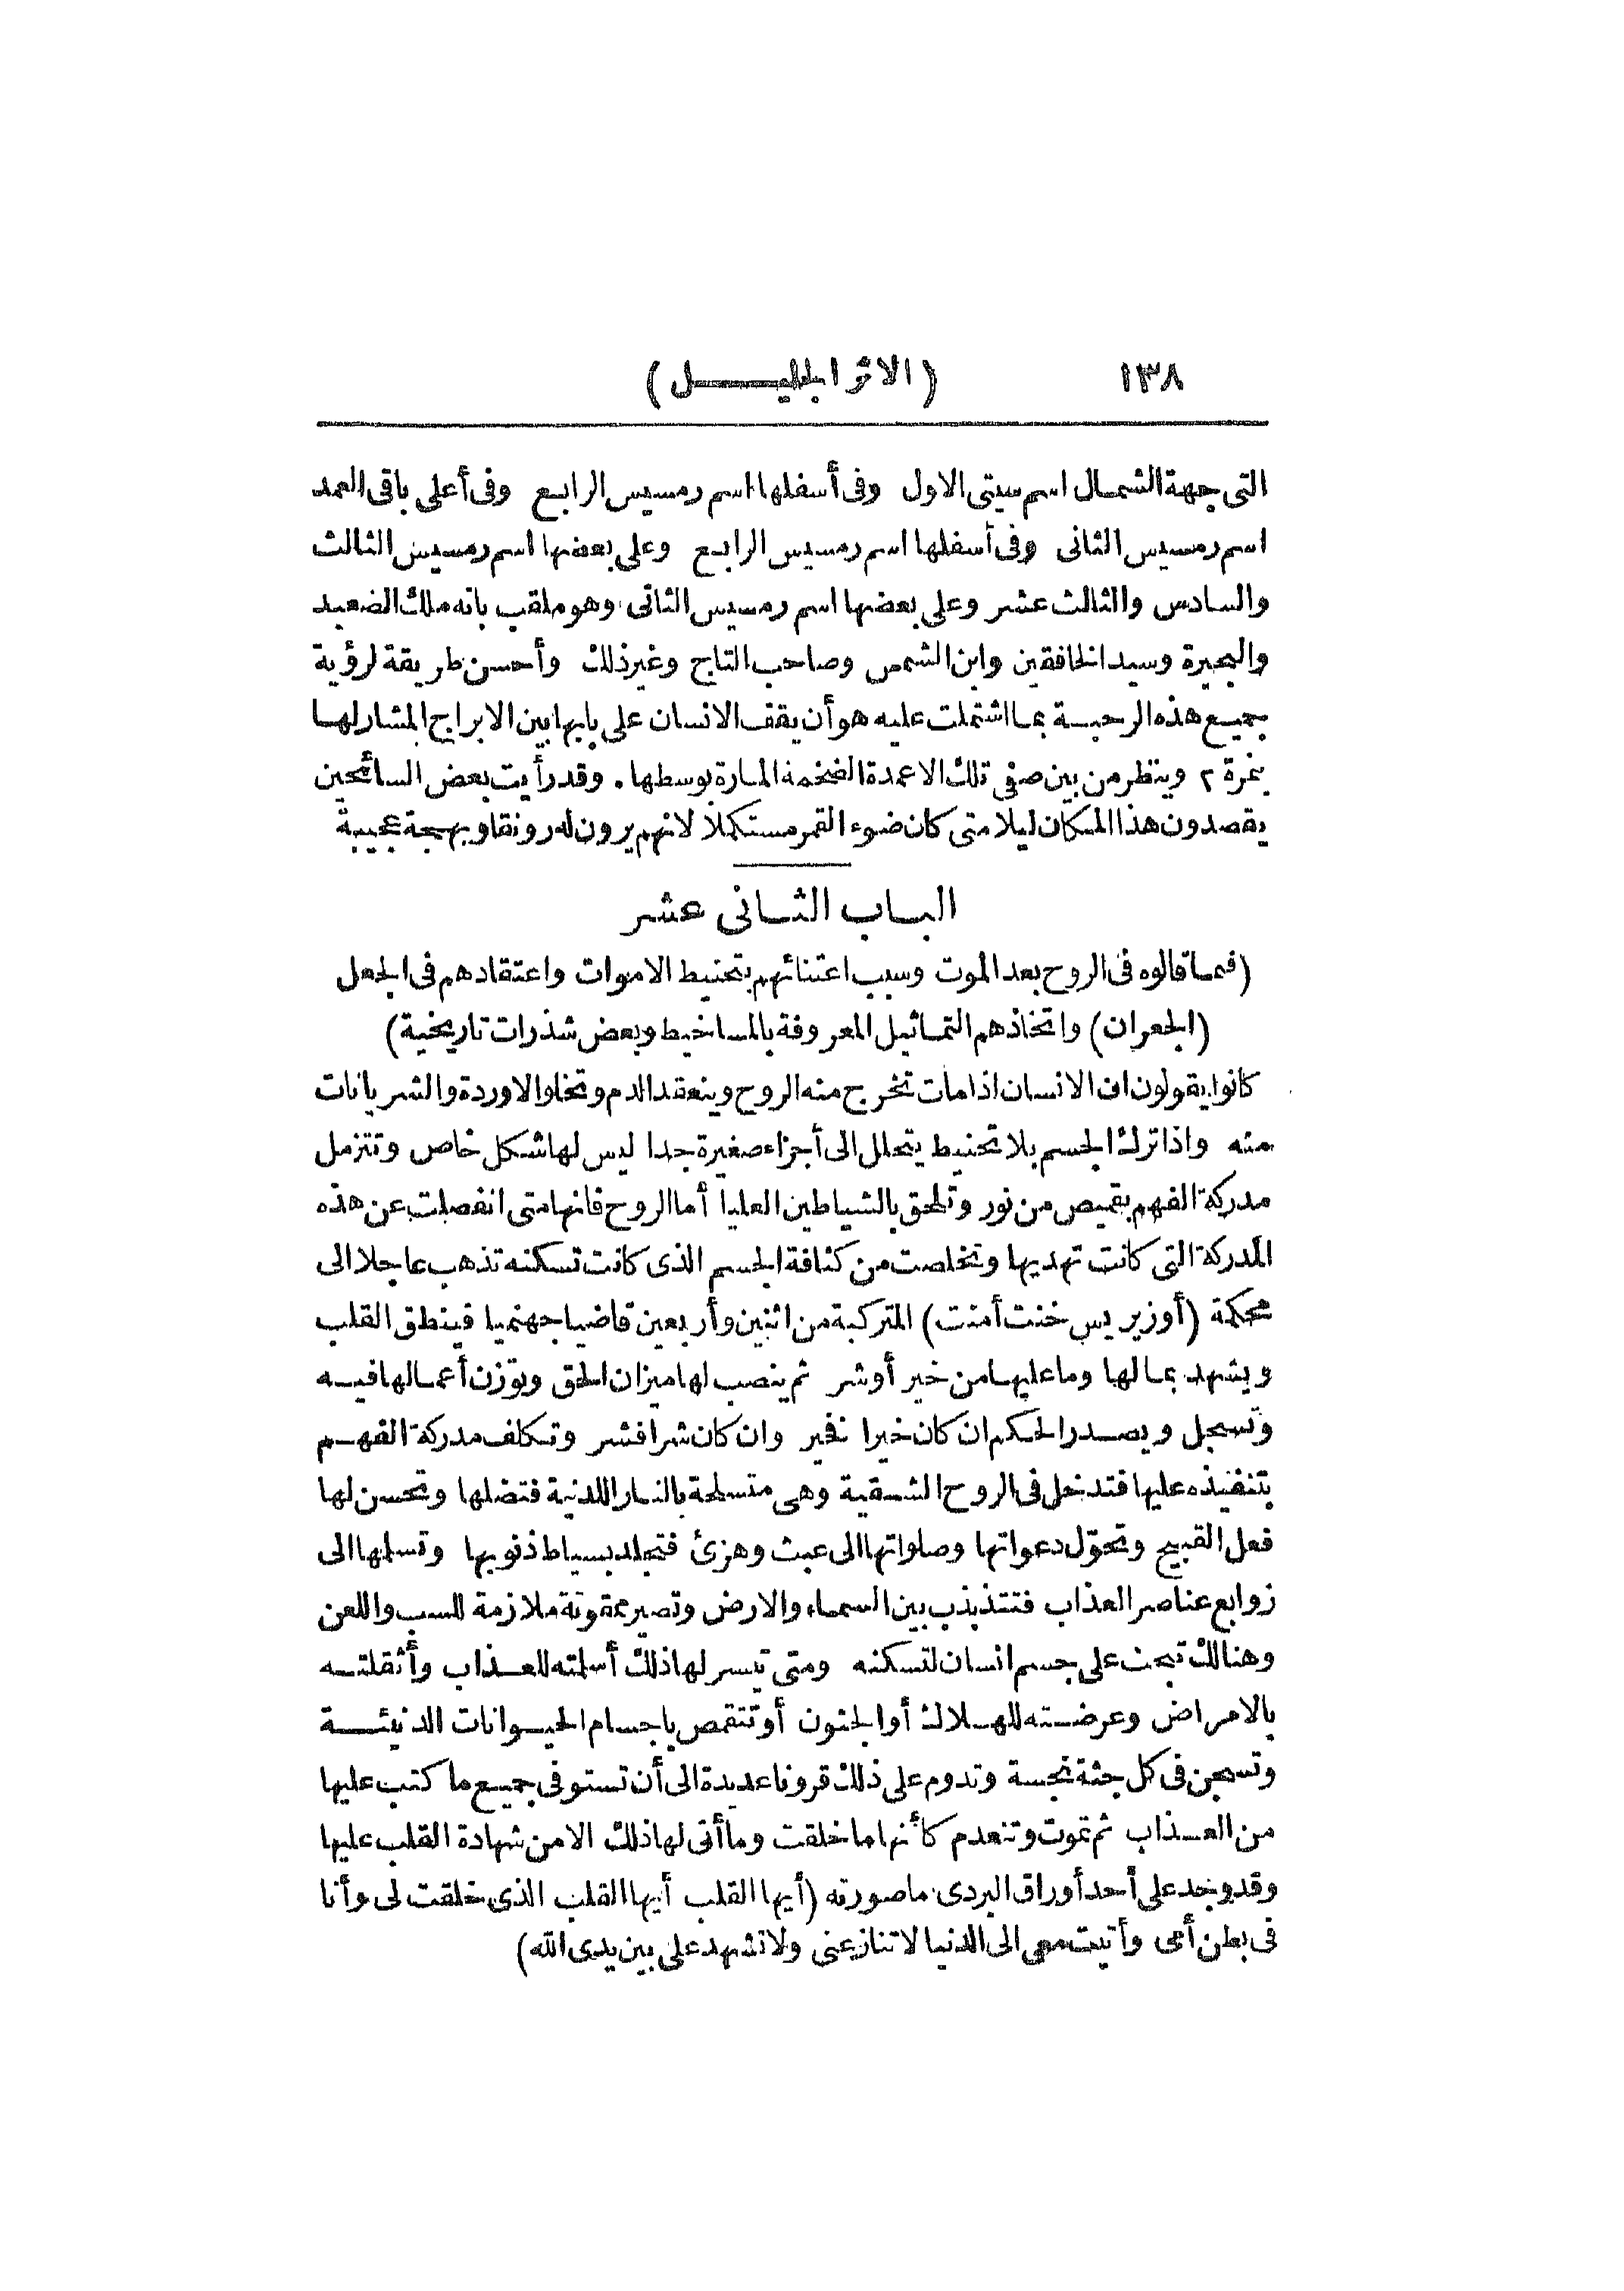 ١٣٨
(الاثر الجليل)
التى جهة الشمال اسم سيتى الاول وفى أسفلها اسم رمسيس الرابع وفى أعلى باقى العمد
اسم رمسيس الثانى وفى أسفلها اسم رمسيس الرابع وعلى بعضها اسم رمسيس الثالث
والسادس والثالث عشر وعلى بعضها اسم رمسيس الثانى وهو ملقب بانه ملك الصعيد
والبحيرة وسيد الخافقين وابن الشمس وصاحب التاج وغير ذلك وأحسن طريقة لرؤية
جميع هذه الرحبة بما اشتملت عليه هو أن يقف الانسان على بابها بين الابراج المشار لها
بنمرة ٢ وينظر من بين صفى تلك الاعمدة الضخمة المارة بوسطها. وقد رأيت بعض السائحين
يقصدون هذا المكان ليلا متى كان ضوء القمر مستكملا لانهم يرون له رونقا وبهجة عجيبة
الباب الثانى عشر
(فيما قالوه فى الروح بعد الموت وسبب اعتنائهم بتحنيط الاموات واعتقادهم فى الجعل
(الجعران) واتخاذهم التماثيل المعروفة بالمساخيط وبعض شذرات تاريخية)
كانوا يقولون ان الانسان اذا مات تخرج منه الروح وينعقد الدم وتخلو الاوردة والشريانات
منه واذا ترك الجسم بلا تحنيط يتحلل الى أجزاء صغيرة جدا ليس لها شكل خاص وتتزمل
مدركة الفهم بقميص من نور وتلحق بالشياطين العليا أما الروح فانها متى انفصلت عن هذه
المدركة التى كانت تهديها وتخلصت من كثافة الجسم الذى كانت تسكنه تذهب عاجلا الى
محكمة (أوزيريس خنت أمنت) المتركبة من اثنين وأربعين قاضيا جهنميا فينطق القلب
ويشهد بما لها وما عليها من خير أو شر ثم ينصب لها ميزان الحق وتوزن أعمالها فيه
وتسجل ويصدر الحكم ان كان خيرا فخير وان كان شرا فشر وتكلف مدركة الفهم
بتنفيذه عليها فتدخل فى الروح الشقية وهى متسلحة بالنار اللدنية فتضلها وتحسن لها
فعل القبيح وتحوّل دعواتها وصلواتها الى عبث وهزئ فتجلد بسياط ذنوبها وتسلمها الى
زوابع عناصر العذاب فتتذبذب بين السماء والارض وتصير ممقوتة ملازمة للسب واللعن
وهنالك تبحث على جسم انسان لتسكنه ومتى تيسر لها ذلك أسلمته للعذاب وأثقلته
بالامراض وعرضته للهلاك أو الجنون أو تتقمص باجسام الحيوانات الدنيئة
وتسجن فى كل جثة نجسة وتدوم على ذلك قرونا عديدة الى أن تستوفى جميع ما كتب عليها
من العذاب ثم تموت وتنعدم كأنها ما خلقت وما أتى لها ذلك الا من شهادة القلب عليها
وقد وجد على أحد أوراق البردى ما صورته (أيها القلب أيها القلب الذى خلقت لى وأنا
فى بطن أمى وأتيت معى الى الدنيا لا تنازعنى ولا تشهد على بين يدى الله)